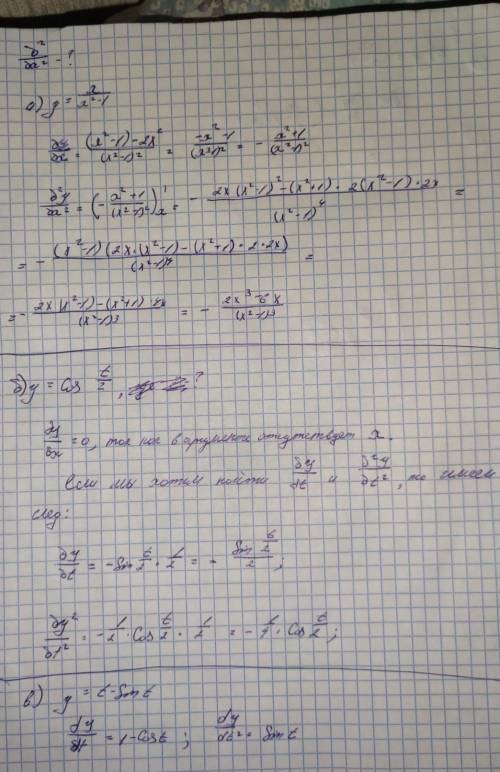 ∂²/∂x² - ?
а) y = x/(x²-1)
∂y/∂x = ((x²-1)-2x²)/(x²-1)² = (-x²-1)/(x²-1)² = - (x²+1)/(x²-1)²
∂²y/∂x² = (- (x²+1)/(x²-1)²)'ₓ = - (2x(x²-1)²-(x²+1)·2(x²-1)·2x)/(x²-1)⁴ =
= - ((x²-1)(2x·(x²-1)-(x²+1)·2·2x))/(x²-1)⁴ =
= - (2x(x²-1)-(x²+1)·4x)/(x²-1)³ = - (2x³-6x)/(x²-1)³
б) y = cos t/2, ?
∂y/∂x = 0, так как в аргументе отсутствует x.
Если мы хотим найти ∂y/∂t и ∂²y/∂t², то имеем
след:
∂y/∂t = -sin t/2 · 1/2 = - (sin t/2)/2;
∂y²/∂t² = -1/2 · cos t/2 · 1/2 = -1/4 · cos t/2;
в) y = t-sin t
dy/dt = 1-cos t; dy/dt² = sin t